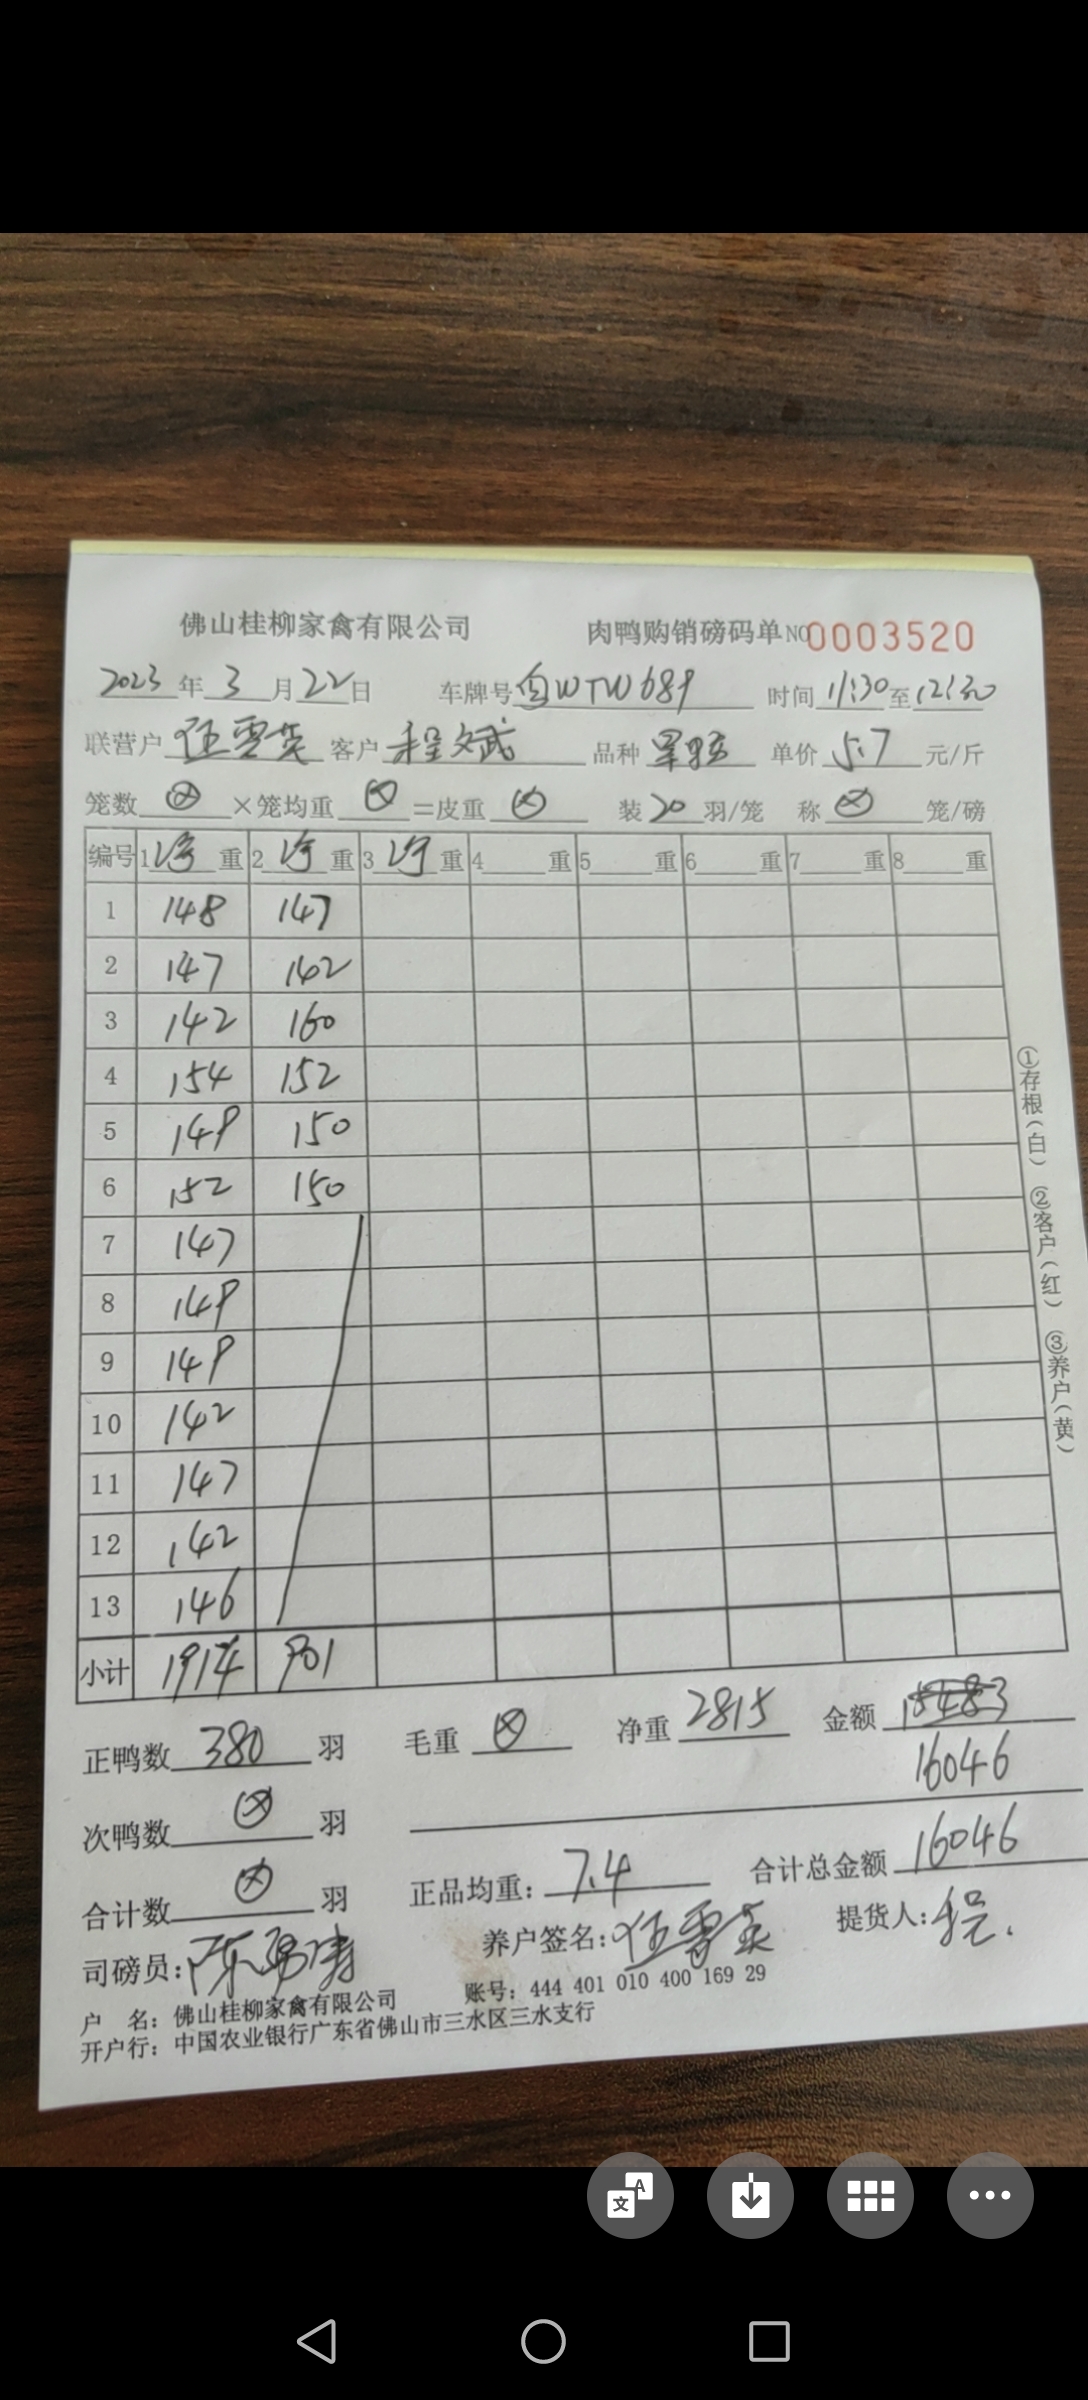 佛山桂柳家禽有限公司 肉鸭购销磅码单 NO 0003520
2023年3月22日 车牌号 WTW689 时间 11:30至12:30
联营户 伍雪英 客户 程文斌 品种 单价 5.7 元/斤
笼数 ⊗ ×笼均重 ⊗ =皮重 ⊗ 装20羽/笼 称 ⊗ 笼/磅
编号 1 净 重 2 净 重 3 净 重 4 重 5 重 6 重 7 重 8 重
1 148 147
2 147 142
3 142 160
4 154 152
5 149 150
6 152 150
7 147
8 149
9 149
10 142
11 147
12 142
13 146
小计 1914 901
正鸭数 380 羽 毛重 ⊗ 净重 2815 金额
16046
次鸭数 ⊗ 羽
合计数 ⊗ 羽 正品均重：7.4 合计总金额 16046
司磅员：陈勇涛 养户签名：伍雪英 提货人：程.
户 名：佛山桂柳家禽有限公司 账号：444 401 010 400 169 29
开户行：中国农业银行广东省佛山市三水区三水支行
①存根(白) ②客户(红) ③养户(黄)